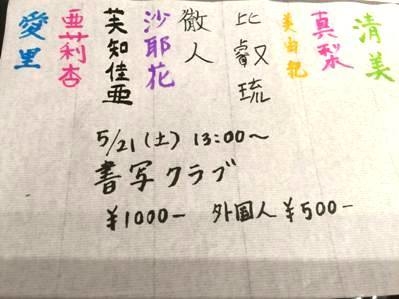 清美
真梨
美由紀
比叡琉
徹人
沙耶花
芙知佳亜
亜莉杏
愛里
5/21(土) 13:00~
書写クラブ
¥1000- 外国人 ¥500-